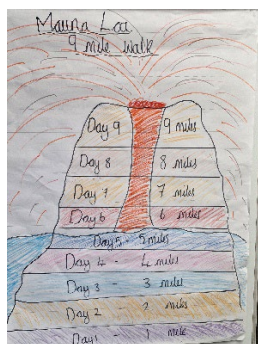 Mauna Loa
9 mile walk
Day 9 9 miles
Day 8 8 miles
Day 7 7 miles
Day 6 6 miles
Day 5 - 5 miles
Day 4 - 4 miles
Day 3 3 miles
Day 2 - 2 miles
Day 1 - 1 mile